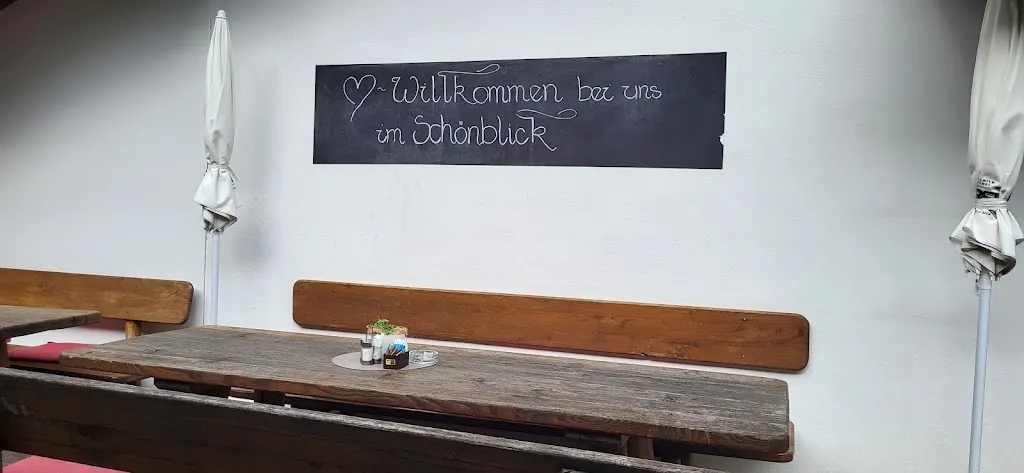 ♡~Willkommen bei uns
im Schönblick